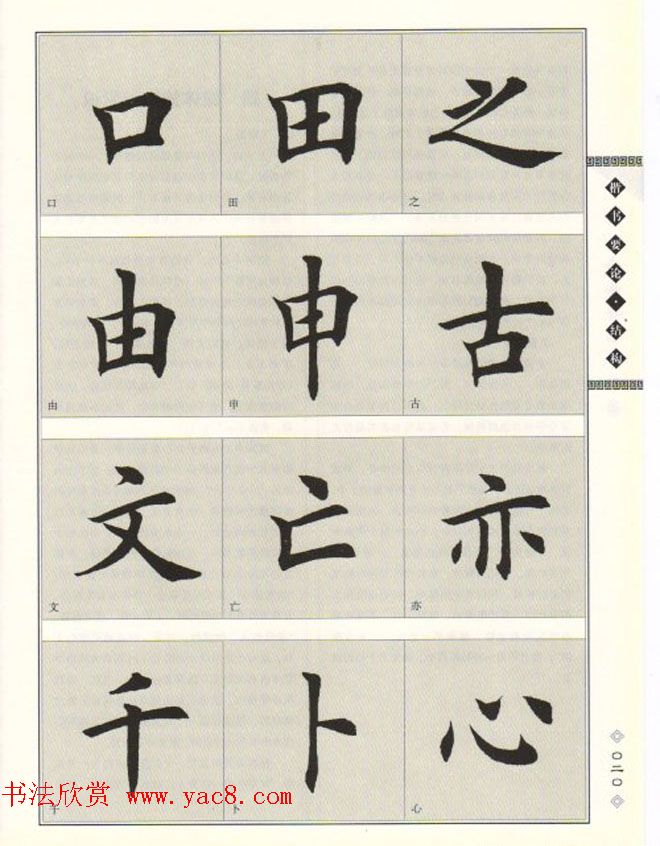 口 田 之
口 田 之
由 申 古
由 申 古
文 亡 亦
文 亡 亦
千 卜 心
千 卜 心
楷书要论·结构
〇二〇
书法欣赏 www.yac8.com